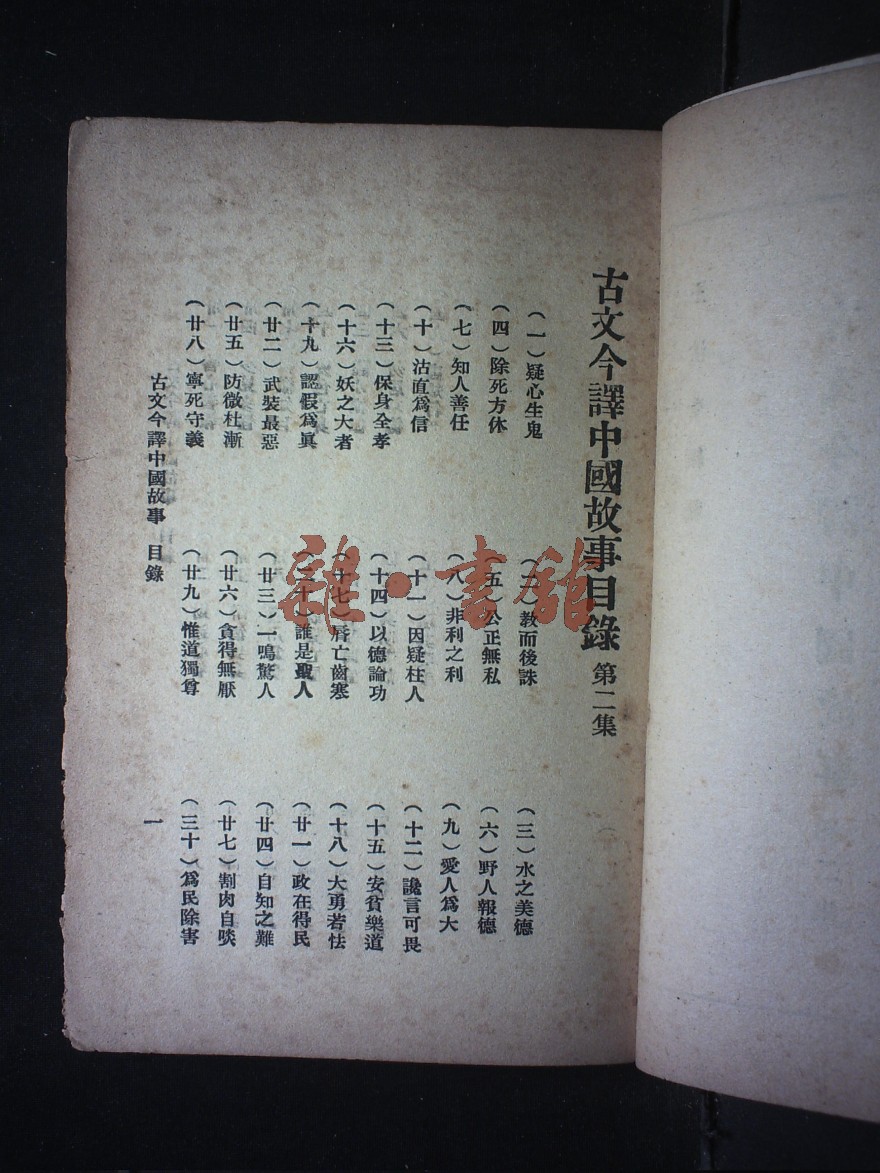 古文今譯中國故事目錄 第二集
(一)疑心生鬼
(二)教而後誅
(三)水之美德
(四)除死方休
(五)公正無私
(六)野人報德
(七)知人善任
(八)非利之利
(九)愛人爲大
(十)沽直爲信
(十一)因疑枉人
(十二)讒言可畏
(十三)保身全孝
(十四)以德論功
(十五)安貧樂道
(十六)妖之大者
(十七)唇亡齒寒
(十八)大勇若怯
(十九)認假爲眞
(二十)誰是聖人
(廿一)政在得民
(廿二)武裝最惡
(廿三)一鳴驚人
(廿四)自知之難
(廿五)防微杜漸
(廿六)貪得無厭
(廿七)割肉自啖
(廿八)寧死守義
(廿九)惟道獨尊
(三十)爲民除害
古文今譯中國故事 目錄
一
雜·書館